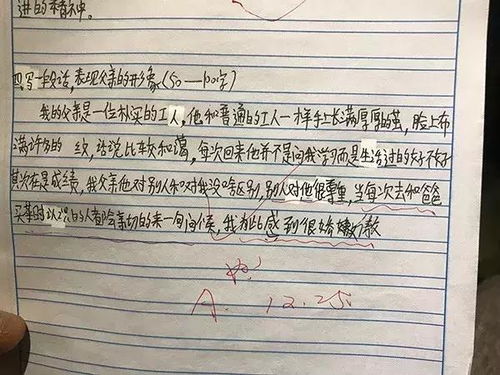 进的精神。
四、写一段话,表现父亲的形象(50—100字)
我的父亲是一位朴实的工人,他和普通的工人一样手上长满厚厚的茧,脸上布
满的 纹,话说比较和蔼,每次回来他并不是问我学习而是生活过的好不好
其次在是成绩,我父亲他对别人和对我没啥区别,别人对他很尊重,当每次去和爸爸
买菜时认识的人都会亲切的来一句问候,我为此感到很骄傲
A. 12.25